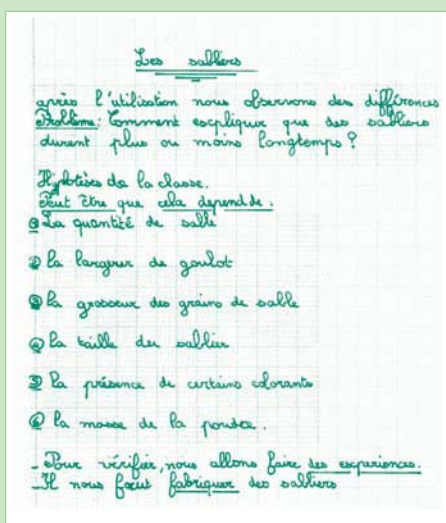 Les sabliers
après l'utilisation nous observons des différences
Problème: Comment expliquer que des sabliers
durent plus ou moins longtemps ?
Hypotèses de la classe.
Peut être que cela depend de :
① La quantité de sable
② la largeur de goulot
③ la grosseur des grains de sable
④ la taille du sablier
⑤ la présence de certains colorants
⑥ la masse de la poudre.
- Pour vérifier, nous allons faire des experiences.
- Il nous faut fabriquer des sabliers